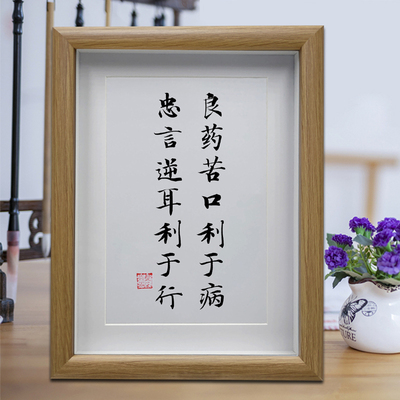 良药苦口利于病
忠言逆耳利于行